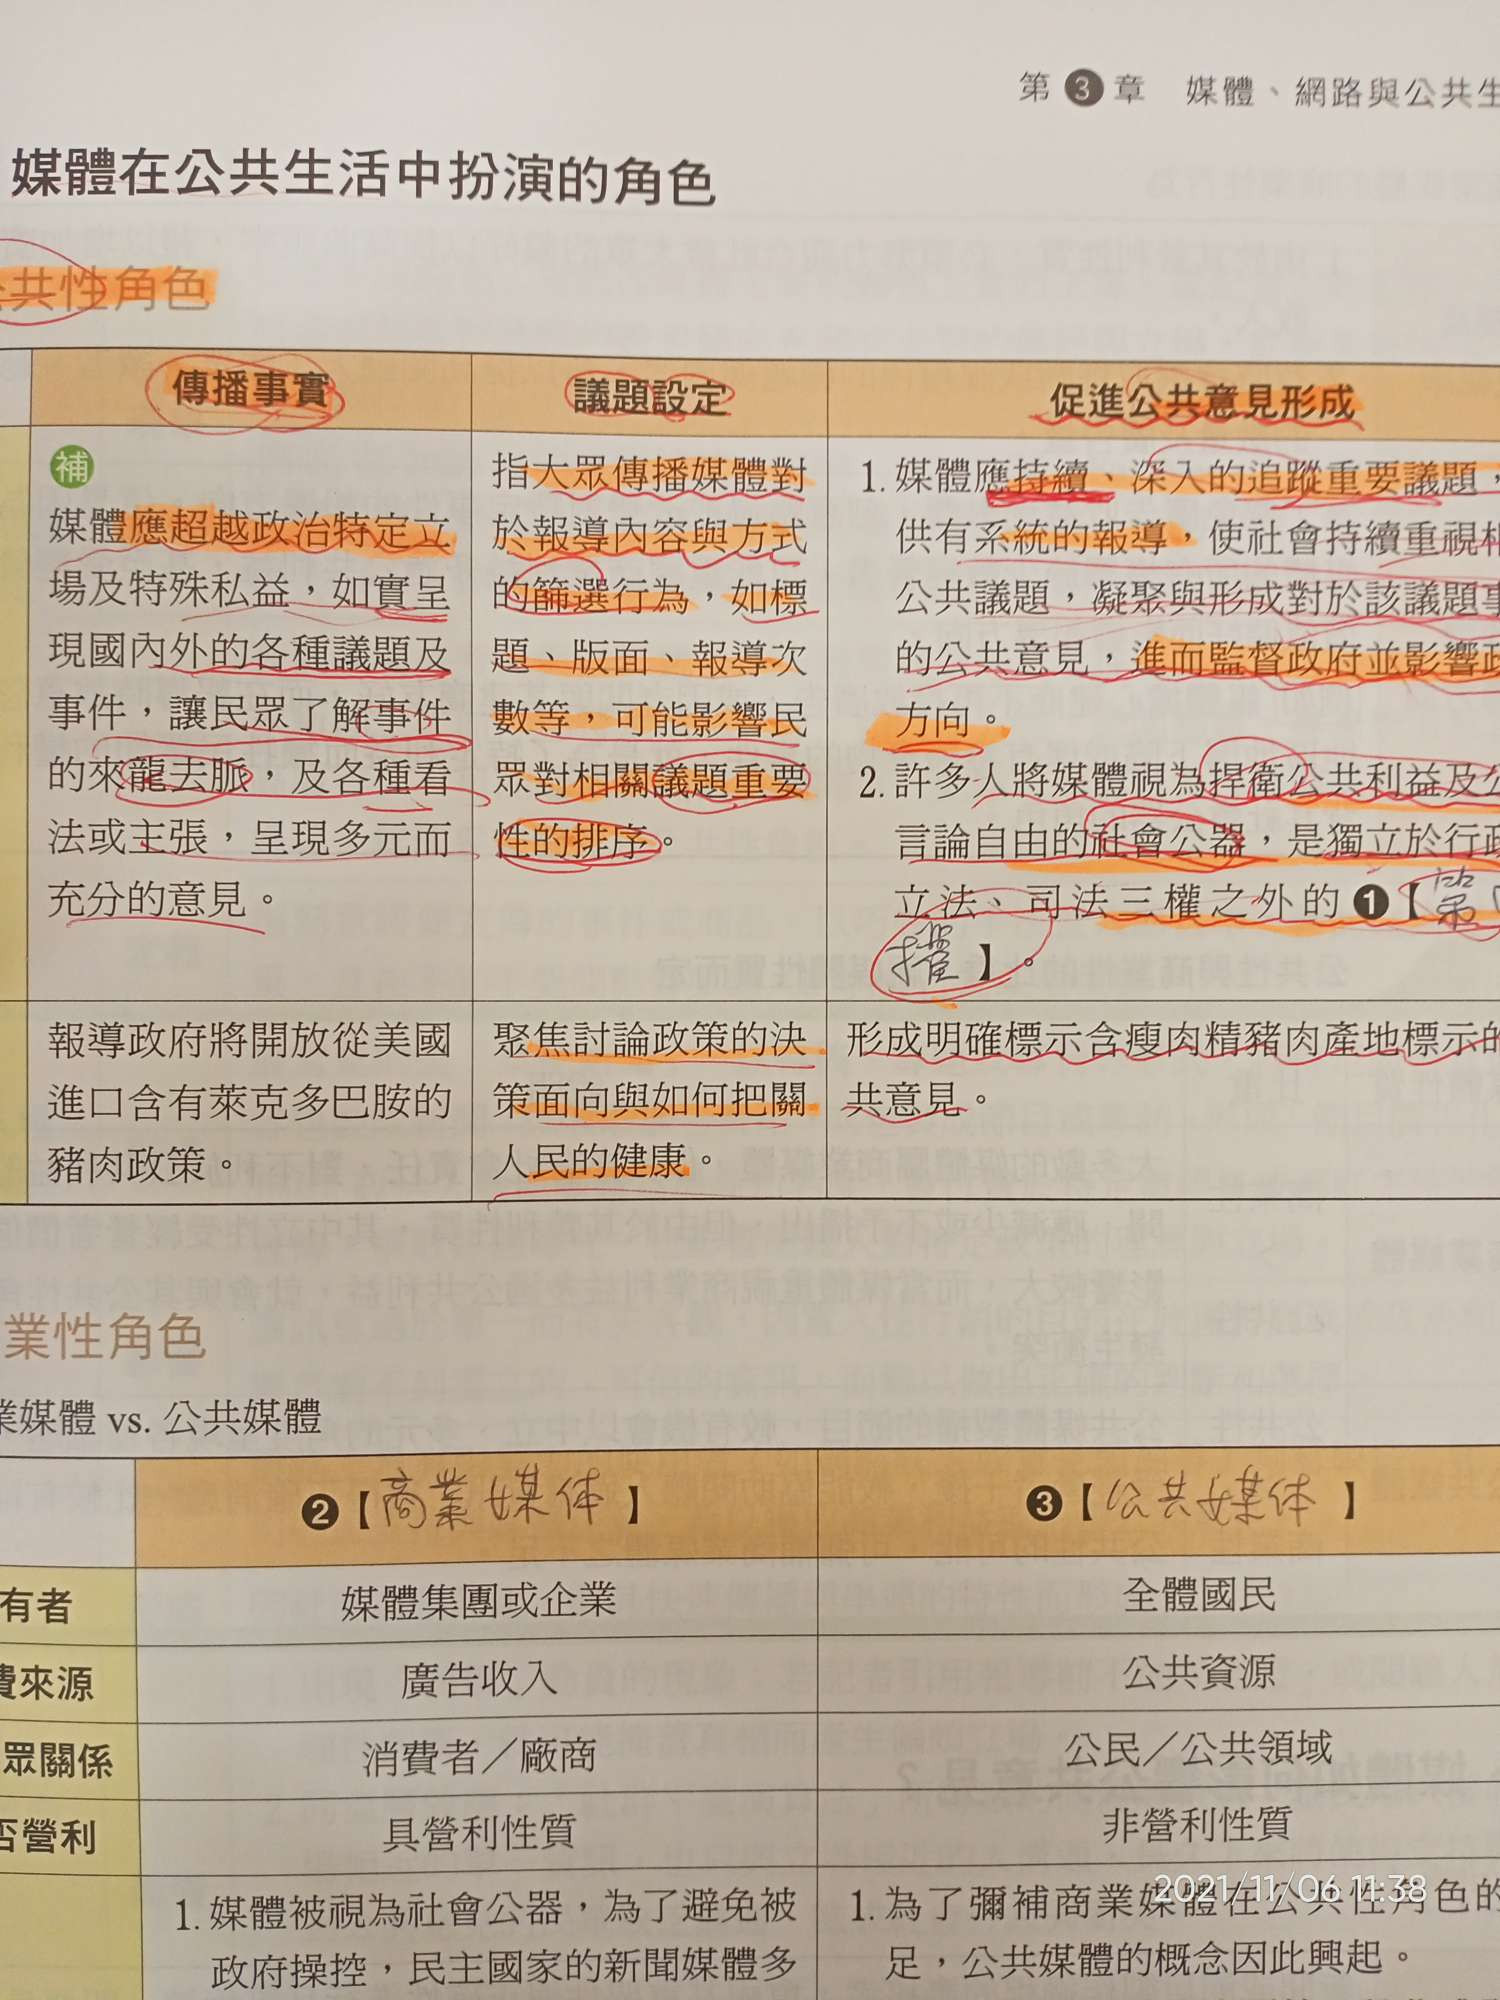 第3章 媒體、網路與公共生
媒體在公共生活中扮演的角色
共性角色
傳播事實
議題設定
促進公共意見形成
補
媒體應超越政治特定立
場及特殊私益，如實呈
現國內外的各種議題及
事件，讓民眾了解事件
的來龍去脈，及各種看
法或主張，呈現多元而
充分的意見。
指大眾傳播媒體對
於報導內容與方式
的篩選行為，如標
題、版面、報導次
數等，可能影響民
眾對相關議題重要
性的排序。
1. 媒體應持續、深入的追蹤重要議題，
供有系統的報導，使社會持續重視相
公共議題，凝聚與形成對於該議題事
的公共意見，進而監督政府並影響政
方向。
2. 許多人將媒體視為捍衛公共利益及公
言論自由的社會公器，是獨立於行政
立法、司法三權之外的❶【第
權】。
報導政府將開放從美國
進口含有萊克多巴胺的
豬肉政策。
聚焦討論政策的決
策面向與如何把關
人民的健康。
形成明確標示含瘦肉精豬肉產地標示的
共意見。
業性角色
業媒體 vs. 公共媒體
❷【商業媒体】
❸【公共媒体】
有者
媒體集團或企業
全體國民
費來源
廣告收入
公共資源
眾關係
消費者／廠商
公民／公共領域
否營利
具營利性質
非營利性質
1. 媒體被視為社會公器，為了避免被
政府操控，民主國家的新聞媒體多
1. 為了彌補商業媒體在公共性角色的
足，公共媒體的概念因此興起。
2021/11/06 11:38